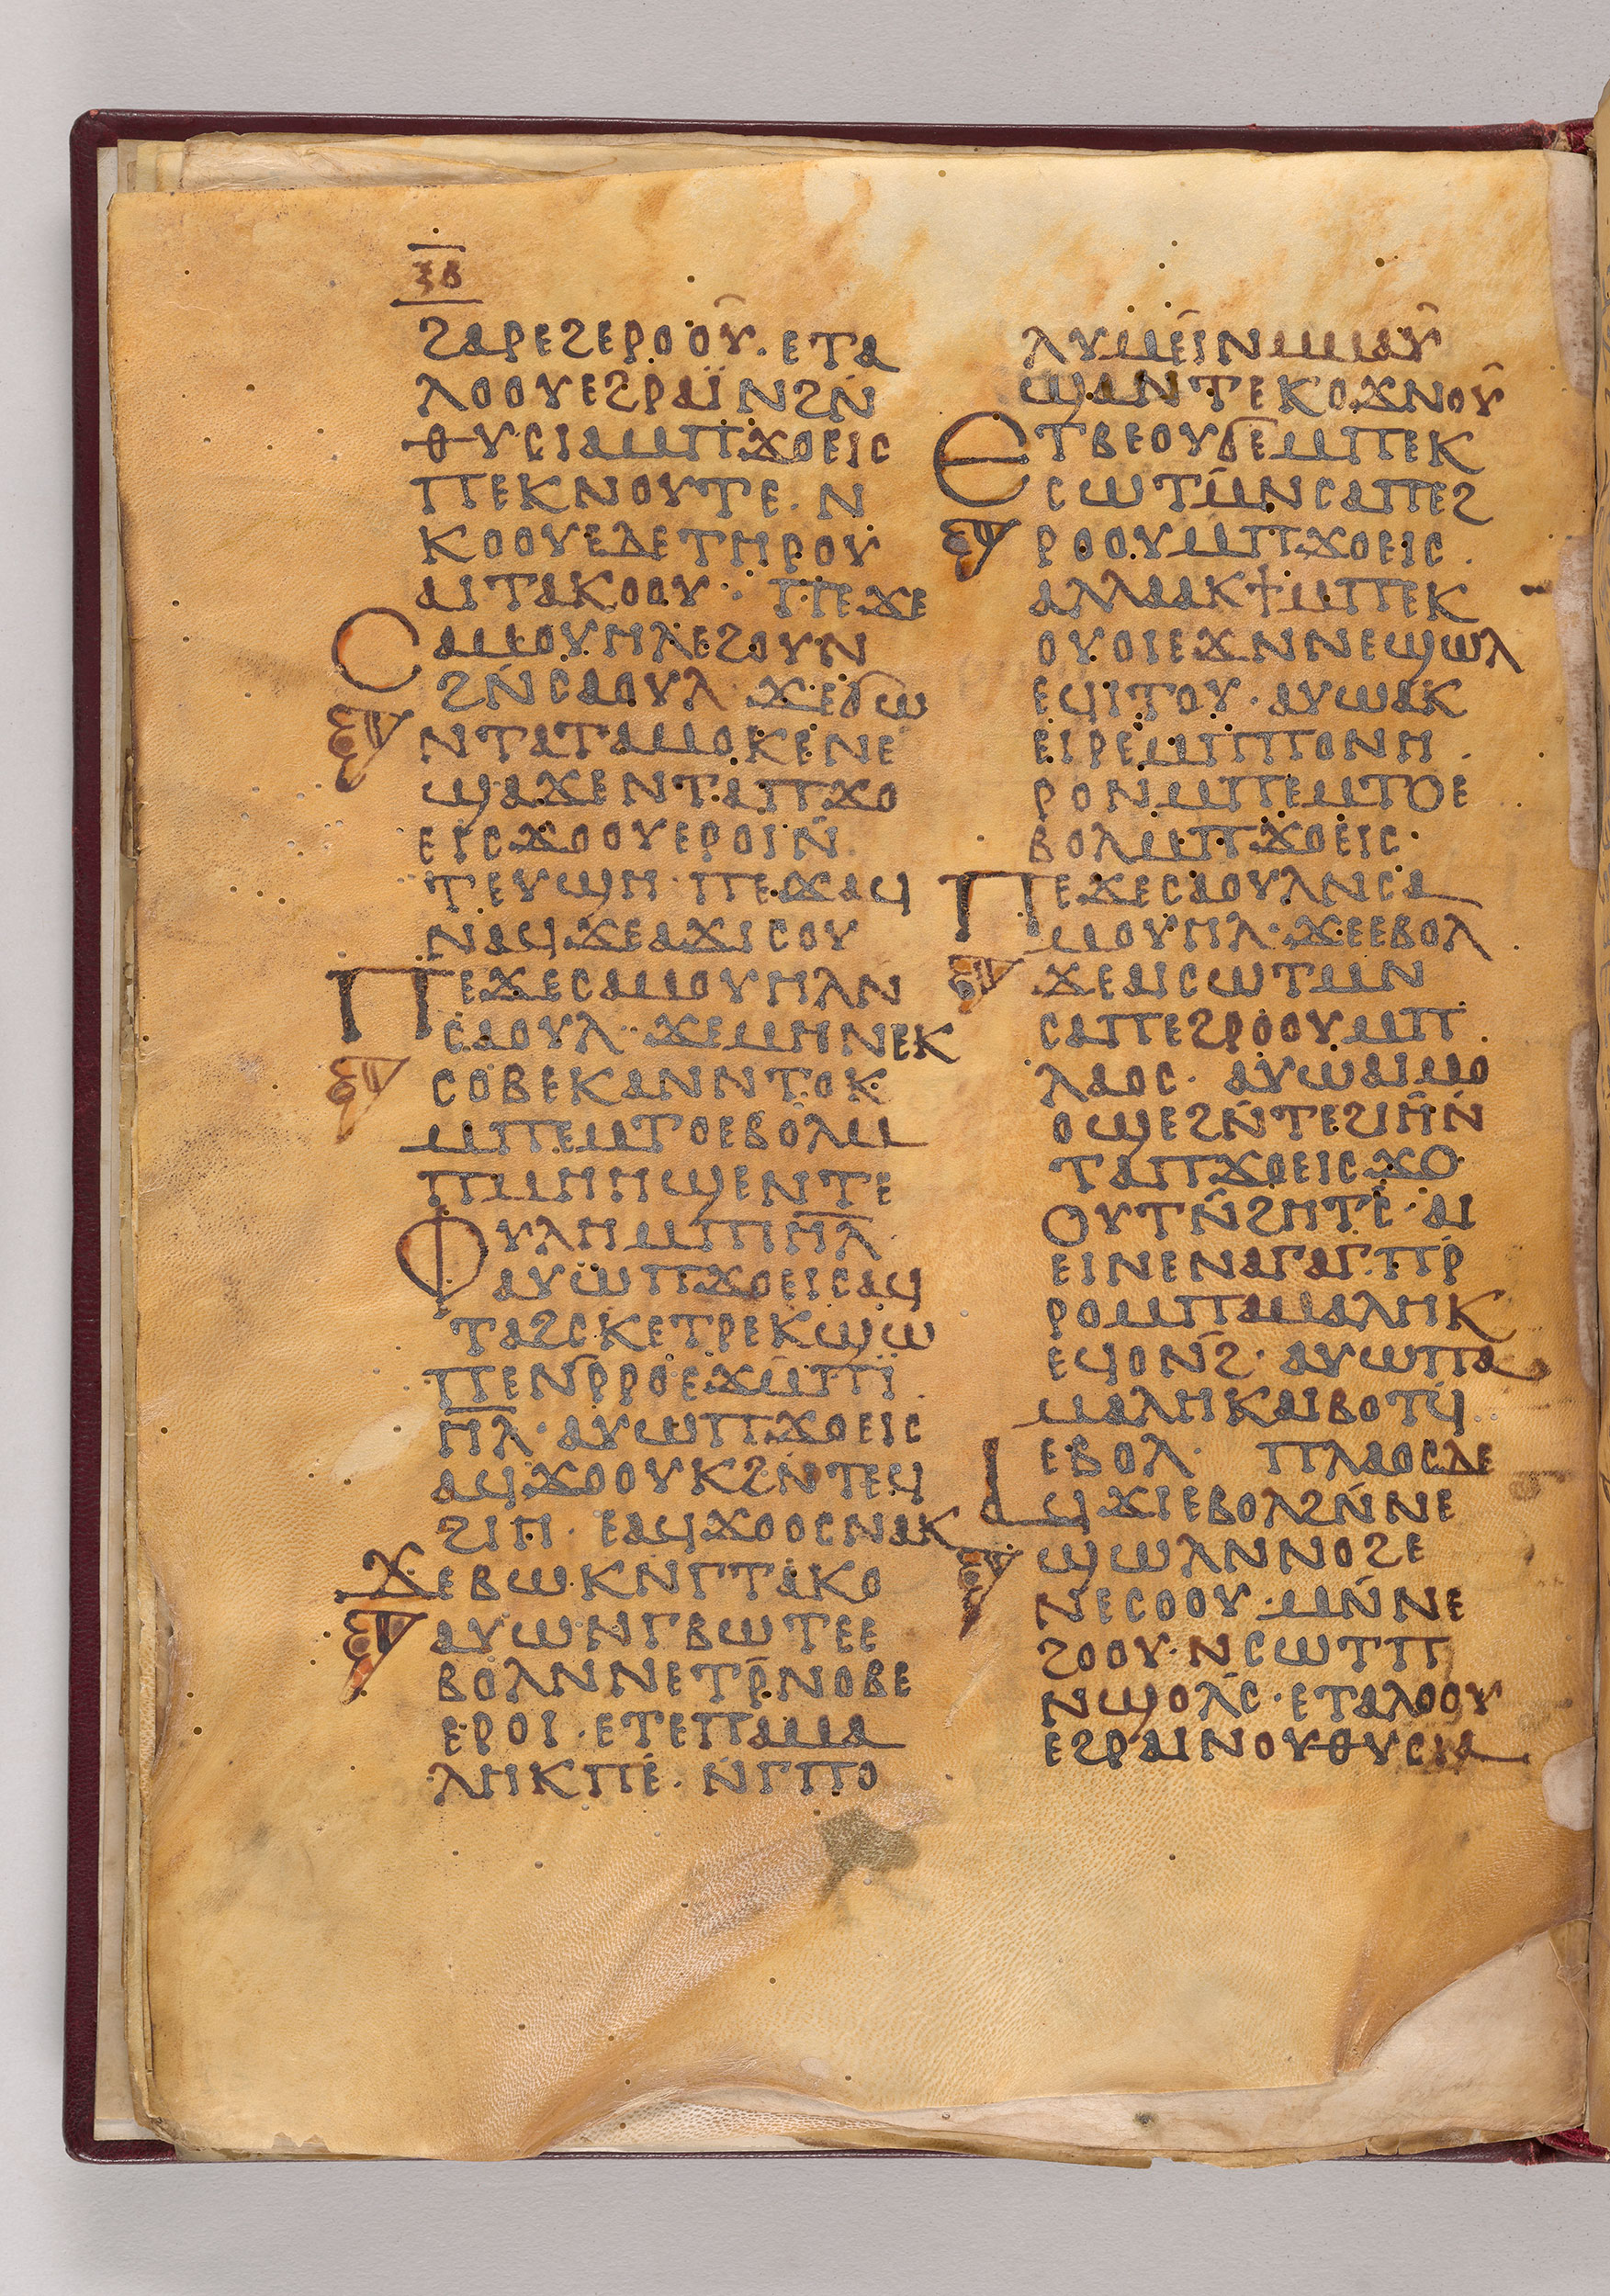 ⲝⲃ
ϩⲁⲣⲉϩⲉⲣⲟⲟⲩ̂· ⲉⲧⲁ
ⲗⲟⲟⲩⲉϩⲣⲁⲓ̈ⲛϩⲛ̄
ⲑⲩⲥⲓⲁⲙⲡϫⲟⲉⲓⲥ
ⲡⲉⲕⲛⲟⲩⲧⲉ· ⲛ
ⲕⲟⲟⲩⲉⲇⲉⲧⲏⲣⲟⲩ
ⲁⲓⲧⲁⲕⲟⲟⲩ· ⲡⲉϫⲉ
ⲥⲁⲙⲟⲩⲏⲗⲉϩⲟⲩⲛ
ϩⲛ̄ⲥⲁⲟⲩⲗ ϫⲉϭⲱ
ⲛⲧⲁⲧⲁⲙⲟⲕⲉⲛⲉ
ϣⲁϫⲉⲛⲧⲁⲡϫⲟ
ⲉⲓⲥϫⲟⲟⲩⲉⲣⲟⲓⲛ̄
ⲧⲉⲩϣⲏ· ⲡⲉϫⲁϥ
ⲛⲁϥϫⲉⲁϫⲓⲥⲟⲩ
ⲡⲉϫⲉⲥⲁⲙⲟⲩⲏⲗⲛ
ⲥⲁⲟⲩⲗ· ϫⲉⲙⲏⲛⲉⲕ
ⲥⲟⲃⲉⲕⲁⲛⲛⲧⲟⲕ
ⲙⲡⲉⲙⲧⲟⲉⲃⲟⲗⲙ
ⲡⲙⲏⲏϣⲉⲛⲧⲉ
ⲫⲩⲗⲏⲙⲡⲏ̄ⲗ̄
ⲁⲩⲱⲡϫⲟⲉⲓⲥⲁϥ
ⲧⲁϩⲥⲕⲉⲧⲣⲉⲕϣⲱ
ⲡⲉⲛⲣ̄ⲣⲟⲉϫⲙ̄ⲡⲓ̈
ⲏ̄ⲗ̄· ⲁⲩⲱⲡϫⲟⲉⲓⲥ
ⲁϥϫⲟⲟⲩⲕϩⲛ̄ⲧⲉϥ
ϩⲓⲏ· ⲉⲁϥϫⲟⲟⲥⲛⲁⲕ
ϫⲉⲃⲱⲕⲛⲅⲧⲁⲕⲟ
ⲁⲩⲱⲛⲅⲃⲱⲧⲉⲉ
ⲃⲟⲗⲛⲛⲉⲧⲣ̄ⲛⲟⲃⲉ
ⲉⲣⲟⲓ· ⲉⲧⲉⲡⲁⲙⲁ
ⲗⲏⲕⲡⲉ· ⲛ̄ⲅⲡⲟ
ⲗⲩⲙⲉⲓⲛⲙⲙⲁⲩ̂
ϣⲁⲛⲧⲉⲕⲟϫⲛⲟⲩ̂
ⲉⲧⲃⲉⲟⲩϭⲉⲙⲡⲉⲕ
ⲥⲱⲧⲙ̄ⲛⲥⲁⲡⲉϩ
ⲣⲟⲟⲩⲙⲡϫⲟⲉⲓⲥ·
ⲁⲗⲗⲁⲁⲕϯⲙⲡⲉⲕ
ⲟⲩⲟⲓⲉϫⲛⲛⲉϣⲱⲗ
ⲉϥⲓⲧⲟⲩ· ⲁⲩⲱⲁⲕ
ⲉⲓⲣⲉⲙⲡⲡⲟⲛⲏ
ⲣⲟⲛⲙⲡⲉⲙⲧⲟⲉ
ⲃⲟⲗⲙⲡϫⲟⲉⲓⲥ·
ⲡⲉϫⲉⲥⲁⲟⲩⲗⲛⲥⲁ
ⲙⲟⲩⲏⲗ· ϫⲉⲉⲃⲟⲗ
ϫⲉⲁⲓⲥⲱⲧⲙⲛ
ⲥⲁⲡⲉϩⲣⲟⲟⲩⲙⲡ
ⲗⲁⲟⲥ· ⲁⲩⲱⲁⲓⲙⲟ
ⲟϣⲉϩⲛ̄ⲧⲉϩⲓⲏ̄ⲛ̄
ⲧⲁⲡϫⲟⲉⲓⲥϫⲟ
ⲟⲩⲧⲛ̄ϩⲏⲧⲥ̄· ⲁⲓ
ⲉⲓⲛⲉⲛⲁⲅⲁⲅ· ⲡⲣ̄
ⲣⲟⲙⲡⲁⲙⲁⲗⲏⲕ
ⲉϥⲟⲛϩ̄· ⲁⲩⲱⲡⲁ
ⲙⲁⲗⲏⲕⲁⲓⲃⲟⲧϥ̄
ⲉⲃⲟⲗ· ⲡⲗⲁⲟⲥⲇⲉ
ⲁϥϫⲓⲉⲃⲟⲗϩⲛ̄ⲛⲉ
ϣⲱⲗⲛⲛⲟϩⲉ
ⲛⲉⲥⲟⲟⲩ· ⲙⲛ̄ⲛⲉ
ϩⲟⲟⲩ· ⲛⲥⲱⲧⲡ
ⲛϣⲟⲗⲥ̄· ⲉⲧⲁⲗⲟⲟⲩ
ⲉϩⲣⲁⲓⲛⲟⲩⲑⲩⲥⲓⲁ